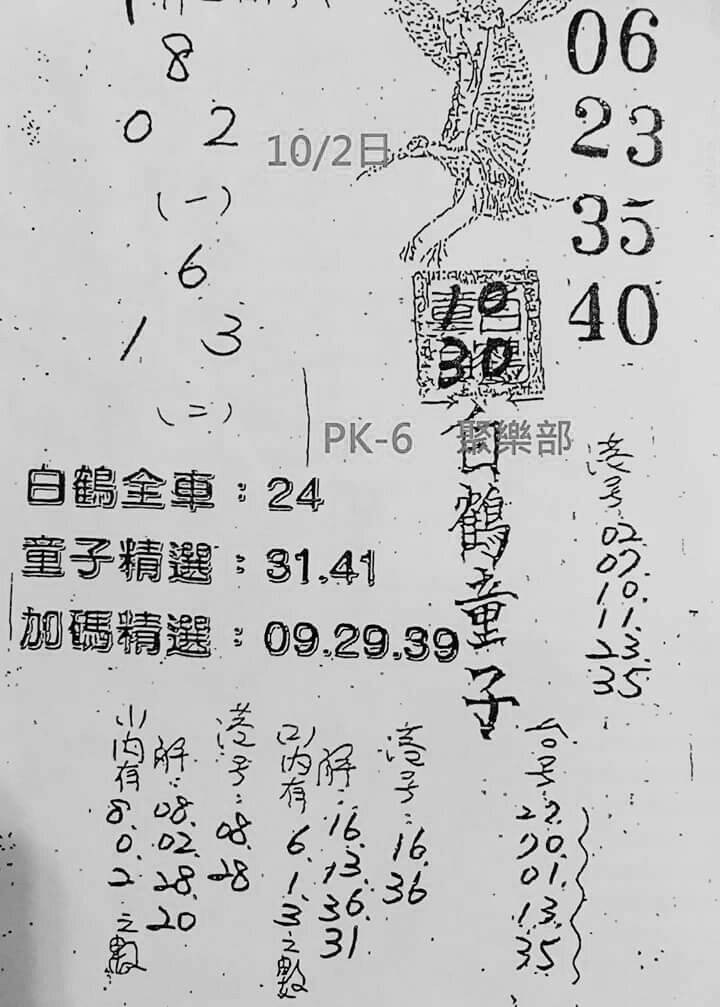 8
0 2
(一)
6
1 3
(二)
10/2日
06
23
35
40
10
30
PK-6 聚樂部
白鶴童子
白鶴全車：24
童子精選：31.41
加碼精選：09.29.39
港号：
02.
07.
10.
11.
23.
35
(1)內有
8.
0.
2
之數
解：
08.
02.
28.
20
港号：
08.
28
(2)內有
6.
1.
3
之數
解：
16.
13.
36.
31
港号：
16.
36
台号：
01.
13.
35